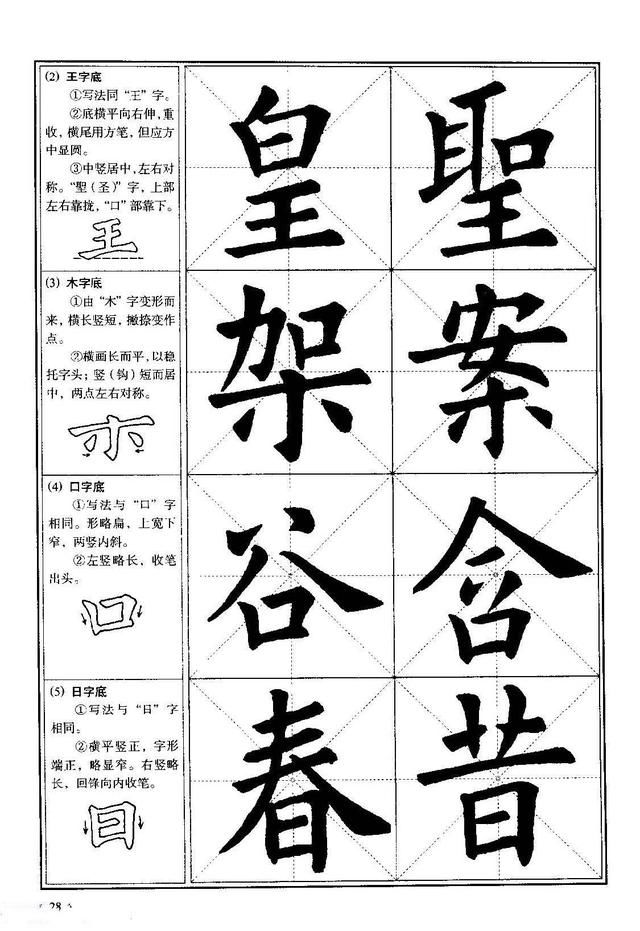 (2) 王字底
①写法同“王”字。
②底横平向右伸，重
收，横尾用方笔，但应方
中显圆。
③中竖居中，左右对
称。“聖（圣）”字，上部
左右靠拢，“口”部靠下。
王
皇 聖
(3) 木字底
①由“木”字变形而
来，横长竖短，撇捺变作
点。
②横画长而平，以稳
托字头；竖（钩）短而居
中，两点左右对称。
架 案
(4) 口字底
①写法与“口”字
相同。形略扁，上宽下
窄，两竖内斜。
②左竖略长，收笔
出头。
口
谷 含
(5) 日字底
①写法与“日”字
相同。
②横平竖正，字形
端正，略显窄。右竖略
长，回锋向内收笔。
日
春 昔
28